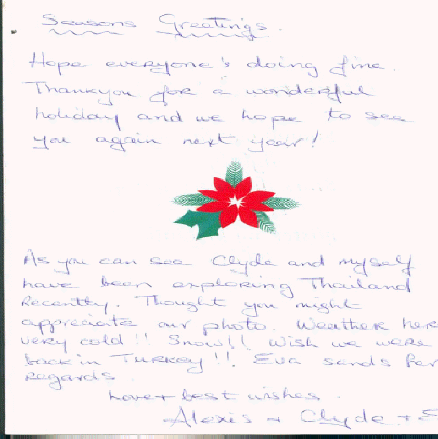 Seasons Greetings.
Hope everyone's doing fine.
Thankyou for a wonderful
holiday and we hope to see
you again next year!
As you can see Clyde and myself
have been exploring Thailand
Recently. Thought you might
appreciate our photo. Weather here
very cold!! Snow!! Wish we were
back in TURKEY!! Eva sends her
Regards.
Love + best wishes.
Alexis + Clyde + E